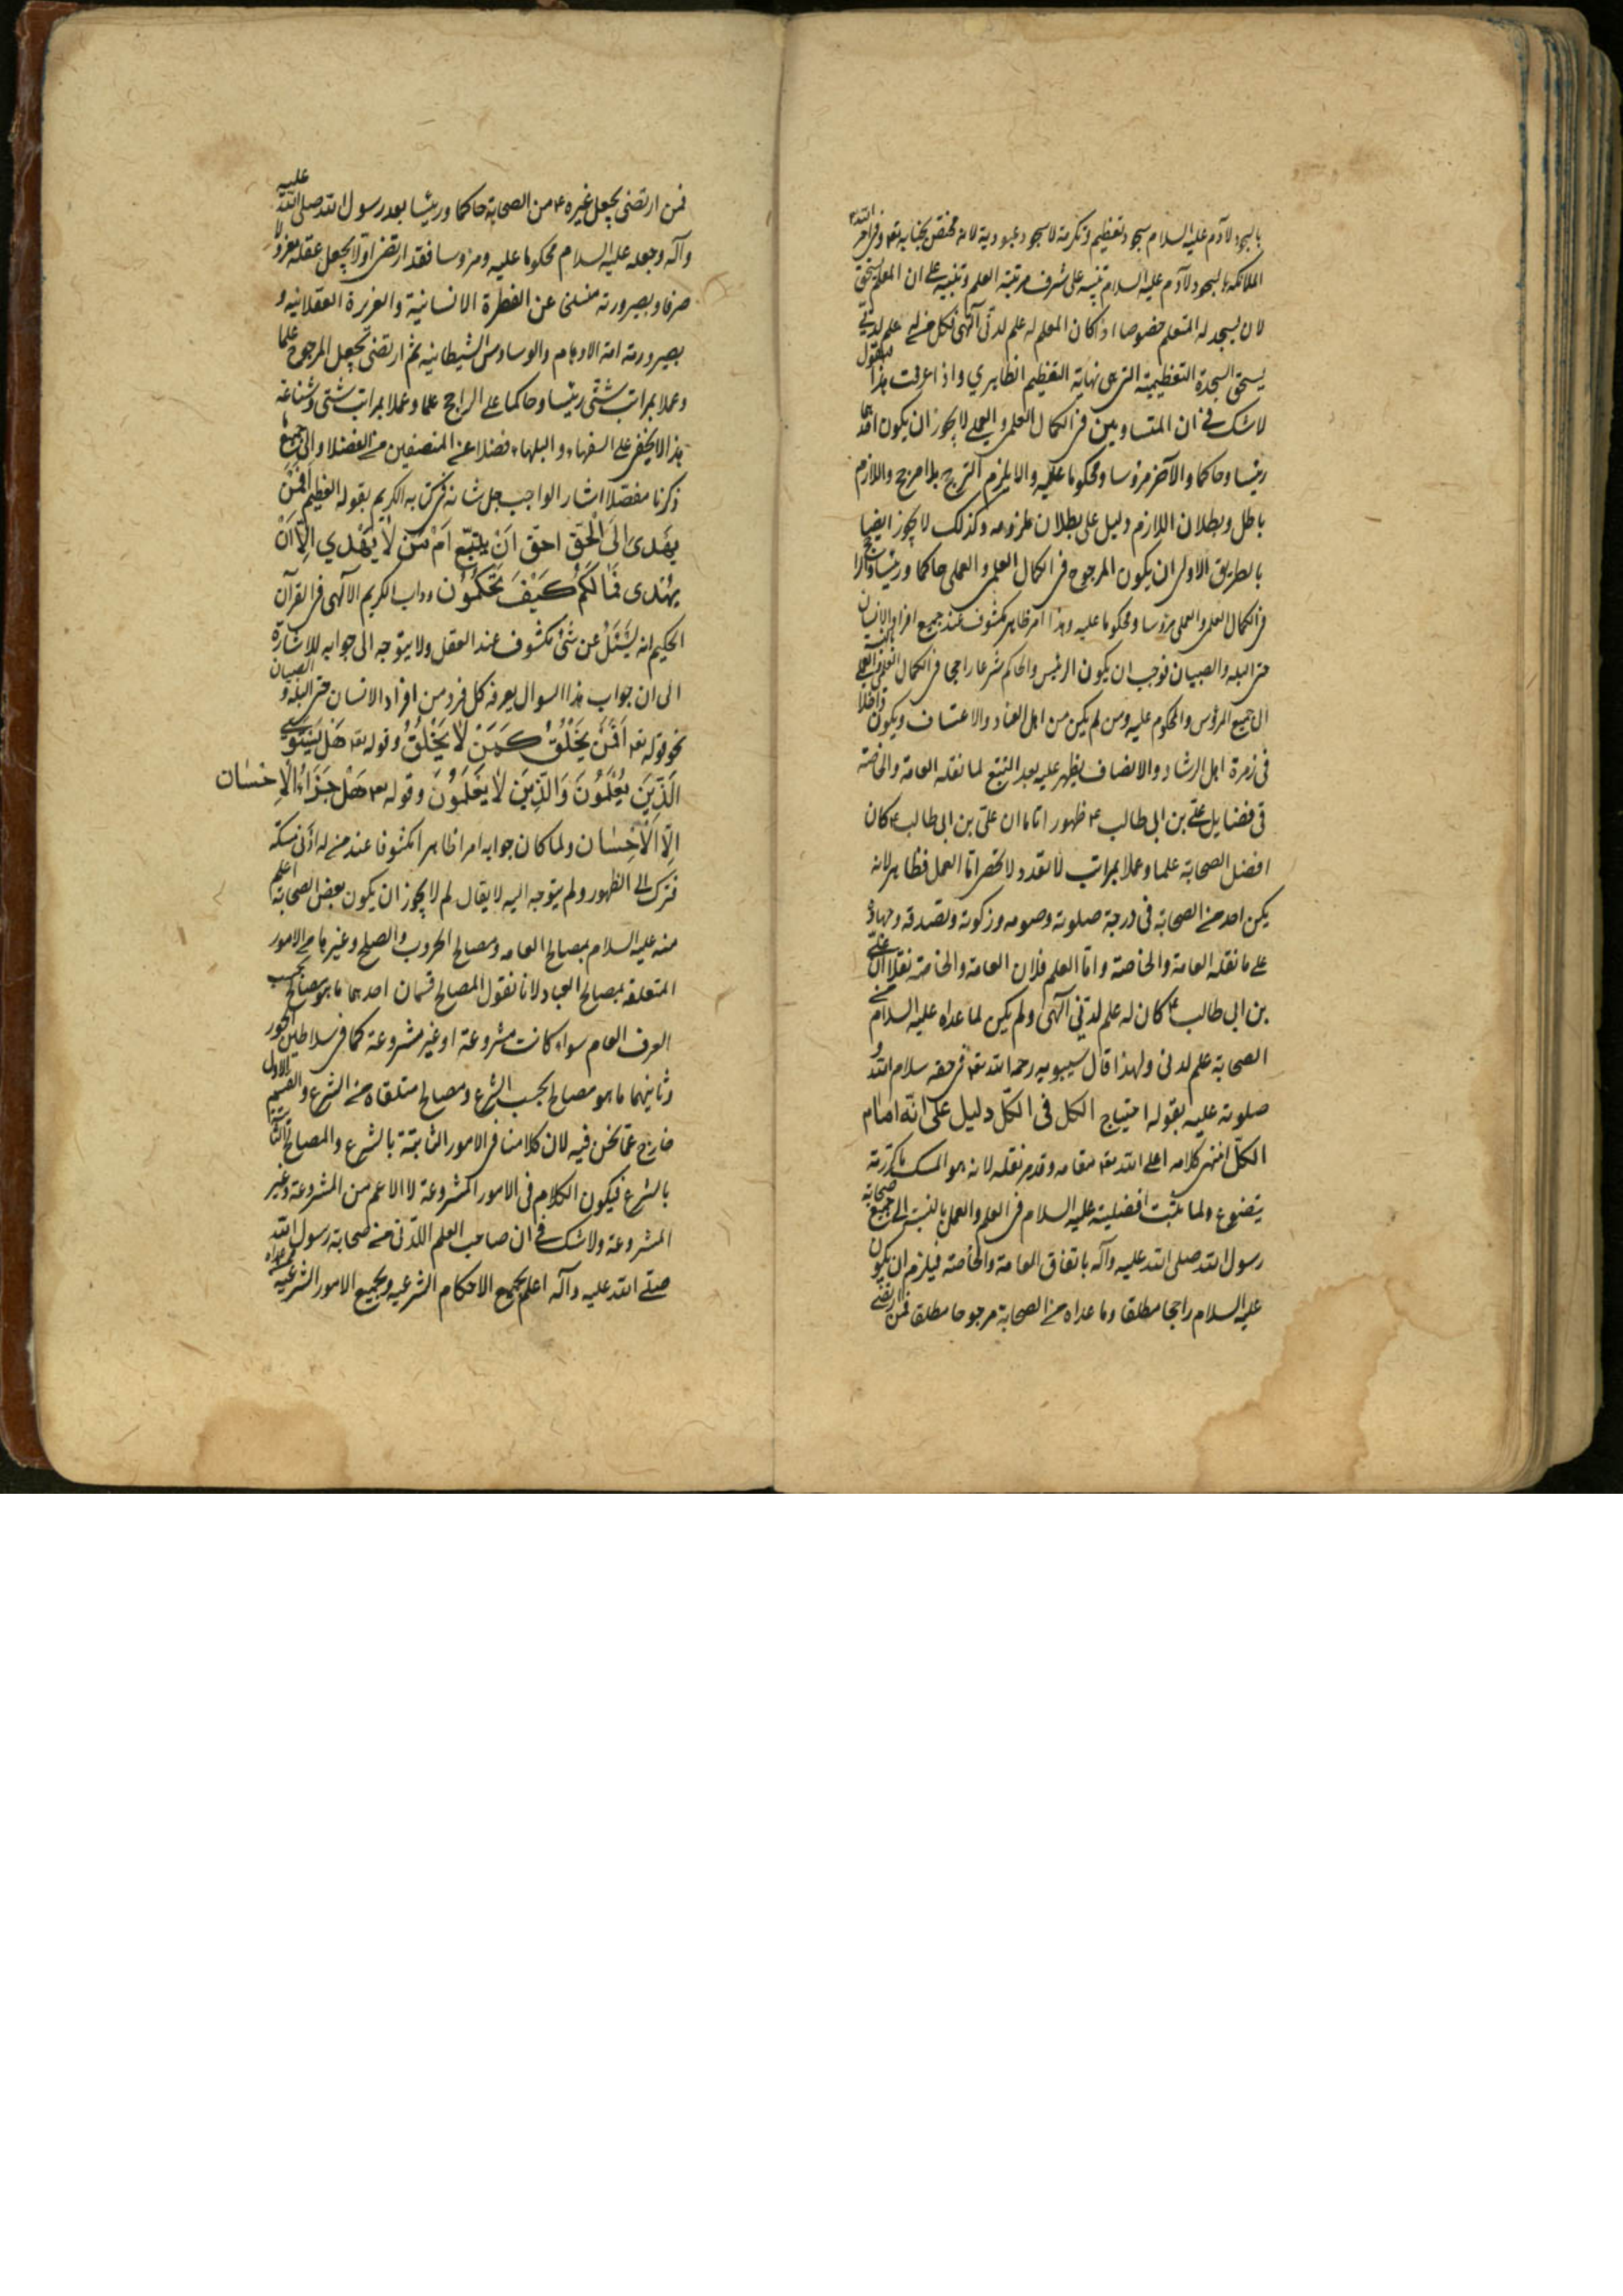 بالسجود لآدم عليه السلام سجود تعظيم وتكرمة لا سجود عبودية لانه مختص بجنابه تعه وفى امر الله تعه
الملائكة بالسجود لآدم عليه السلام تنبيه على شرف مرتبة العلم وتنبيه على ان المعلم يستحق
لان يسجد له المتعلم خصوصا اذا كان المعلم له علم لدنّى آلهى فكل من له علم لدنى
يستحق السجدة التعظيمية التى هى نهاية التعظيم الظاهرى واذا عرفت هذا فنقول
لا شك فى ان المتساويين فى الكمال العلمى والعملى لا يجوز ان يكون احدهما
رئيسا وحاكما والآخر مرؤسا ومحكوما عليه والا يلزم الترجيح بلا مرجح واللازم
باطل وبطلان اللازم دليل على بطلان ملزومه وكذلك لا يجوز ايضا
بالطريق الاولى ان يكون المرجوح فى الكمال العلمى والعملى حاكما ورئيسا والراجح
فى الكمال العلمى والعملى مرؤسا ومحكوما عليه وهذا امر ظاهر مكشوف عند جميع افراد الانسان
حتى البله والصبيان فوجب ان يكون الرئيس والحاكم شرعا راجحا فى الكمال العلمى والعملى بالنسبة
الى جميع المرؤس والمحكوم عليه ومن لم يكن من اهل العناد والاعتساف ويكون داخلا
فى زمرة اهل الرشاد والانصاف يظهر عليه بعد التتبع لما نقله العامة والخاصّة
فى فضايل على بن ابى طالب ع ظهورا تاما ان علىّ بن ابى طالب ع كان
افضل الصحابة علما وعملا بمراتب لا تعد ولا تحصر امّا العمل فظاهر لانه لم
يكن احد من الصحابة فى درجة صلوته وصومه وزكوته وتصدقه وجهاده
على ما نقله العامة والخاصّة وامّا العلم فلان العامة والخاصة نقلا ان على
بن ابى طالب ع كان له علم لدنّى آلهى ولم يكن لما عداه عليه السلام من
الصحابة علم لدنى ولهذا قال سيبويه رحمه الله تعه فى حقه سلام الله و
صلوته عليه بقوله احتياج الكل فى الكلّ دليل على انّه امام
الكلّ انتهى كلامه اعلى الله تعه مقامه وقد مر نقله لانه هو المسك ما كررته
يتضوع ولما ثبت افضليته عليه السلام فى العلم والعمل بالنسبة الى جميع صحابة
رسول الله صلى الله عليه وآله باتفاق العامة والخاصّة فيلزم ان يكون
عليه السلام راجحا مطلقا وما عداه من الصحابة مرجوحا مطلقا فمن ارتضى
فمن ارتضى بجعل غيره ع من الصحابة حاكما ورئيسا بعد رسول الله صلى الله عليه
وآله وجعله عليه السلام محكوما عليه ومرؤسا فقد ارتضى اوّلا بجعل عقله معزولا
صرفا وبصيرورته منسلخى عن الفطرة الانسانية والغريزة العقلانيه و
بصيرورته امة الاوهام والوساوس الشيطانيه ثم ارتضى بجعل المرجوح علما
وعملا بمراتب شتّى رئيسا وحاكما على الراجح علما وعملا بمراتب شتى وشناعة
هذا لا يخفى على السفهاء والبلهاء فضلا عن المنصفين من الفضلا والى جميع ما
ذكرنا مفصّلا اشار الواجب جل شانه فى كتابه الكريم بقوله العظيم اَفَمَنْ
يَهْدى اِلَى الْحَقِّ احق اَنْ يُتَّبَع اَمْ مَنْ لا يَهْدي اِلّا اَنْ
يُهْدى فَمَا لَكُمْ كَيْفَ تَحْكُمُون وداب الكريم الآلهى فى القرآن
الحكيم انه يُسْئَلُ عن شئ مكشوف عند العقل ولا يتوجه الى جوابه للاشارة
الى ان جواب هذا السوال يعرفه كل فرد من افراد الانسان حتى البله والصبيان
نحو قوله تعه اَفَمَنْ يَخْلُقُ كَمَنْ لا يَخْلُقُ وقوله تعه هَلْ يَسْتَوِى
الَّذِينَ يَعْلَمُونَ وَالَّذِينَ لا يَعْلَمُونَ وقوله تعه هَلْ جَزَاءُ الْاِحْسَان
اِلّا الْاِحْسَان ولما كان جوابه امرا ظاهرا مكشوفا عند من له ادْنى مسكة
فترك الى الظهور ولم يتوجه اليه لا يقال لم لا يجوز ان يكون بعض الصحابة اعلم
منه عليه السلام بمصالح العامه ومصالح الحروب والصلح وغيرها من الامور
المتعلقه بمصالح العباد لانا نقول المصالح قسمان احدهما ما هو مصالح بحسب
العرف العام سواء كانت مشروعة او غير مشروعة كما فى سلاطين الجور
وثانيهما ما هو مصالح بحسب الشرع ومصالح متلقاه من الشرع والقسم الاول
خارج عمّا نحن فيه لان كلامنا فى الامور الثابتة بالشرع والمصالح الثابتة
بالشرع فيكون الكلام فى الامور المشروعة لا الاعم من المشروعة وغير
المشروعة ولا شك فى ان صاحب العلم اللدّنى من صحابة رسول الله
صلّى الله عليه وآله اعلم بجميع الاحكام الشرعيه وبجميع الامور الشرعيه ممن عداه